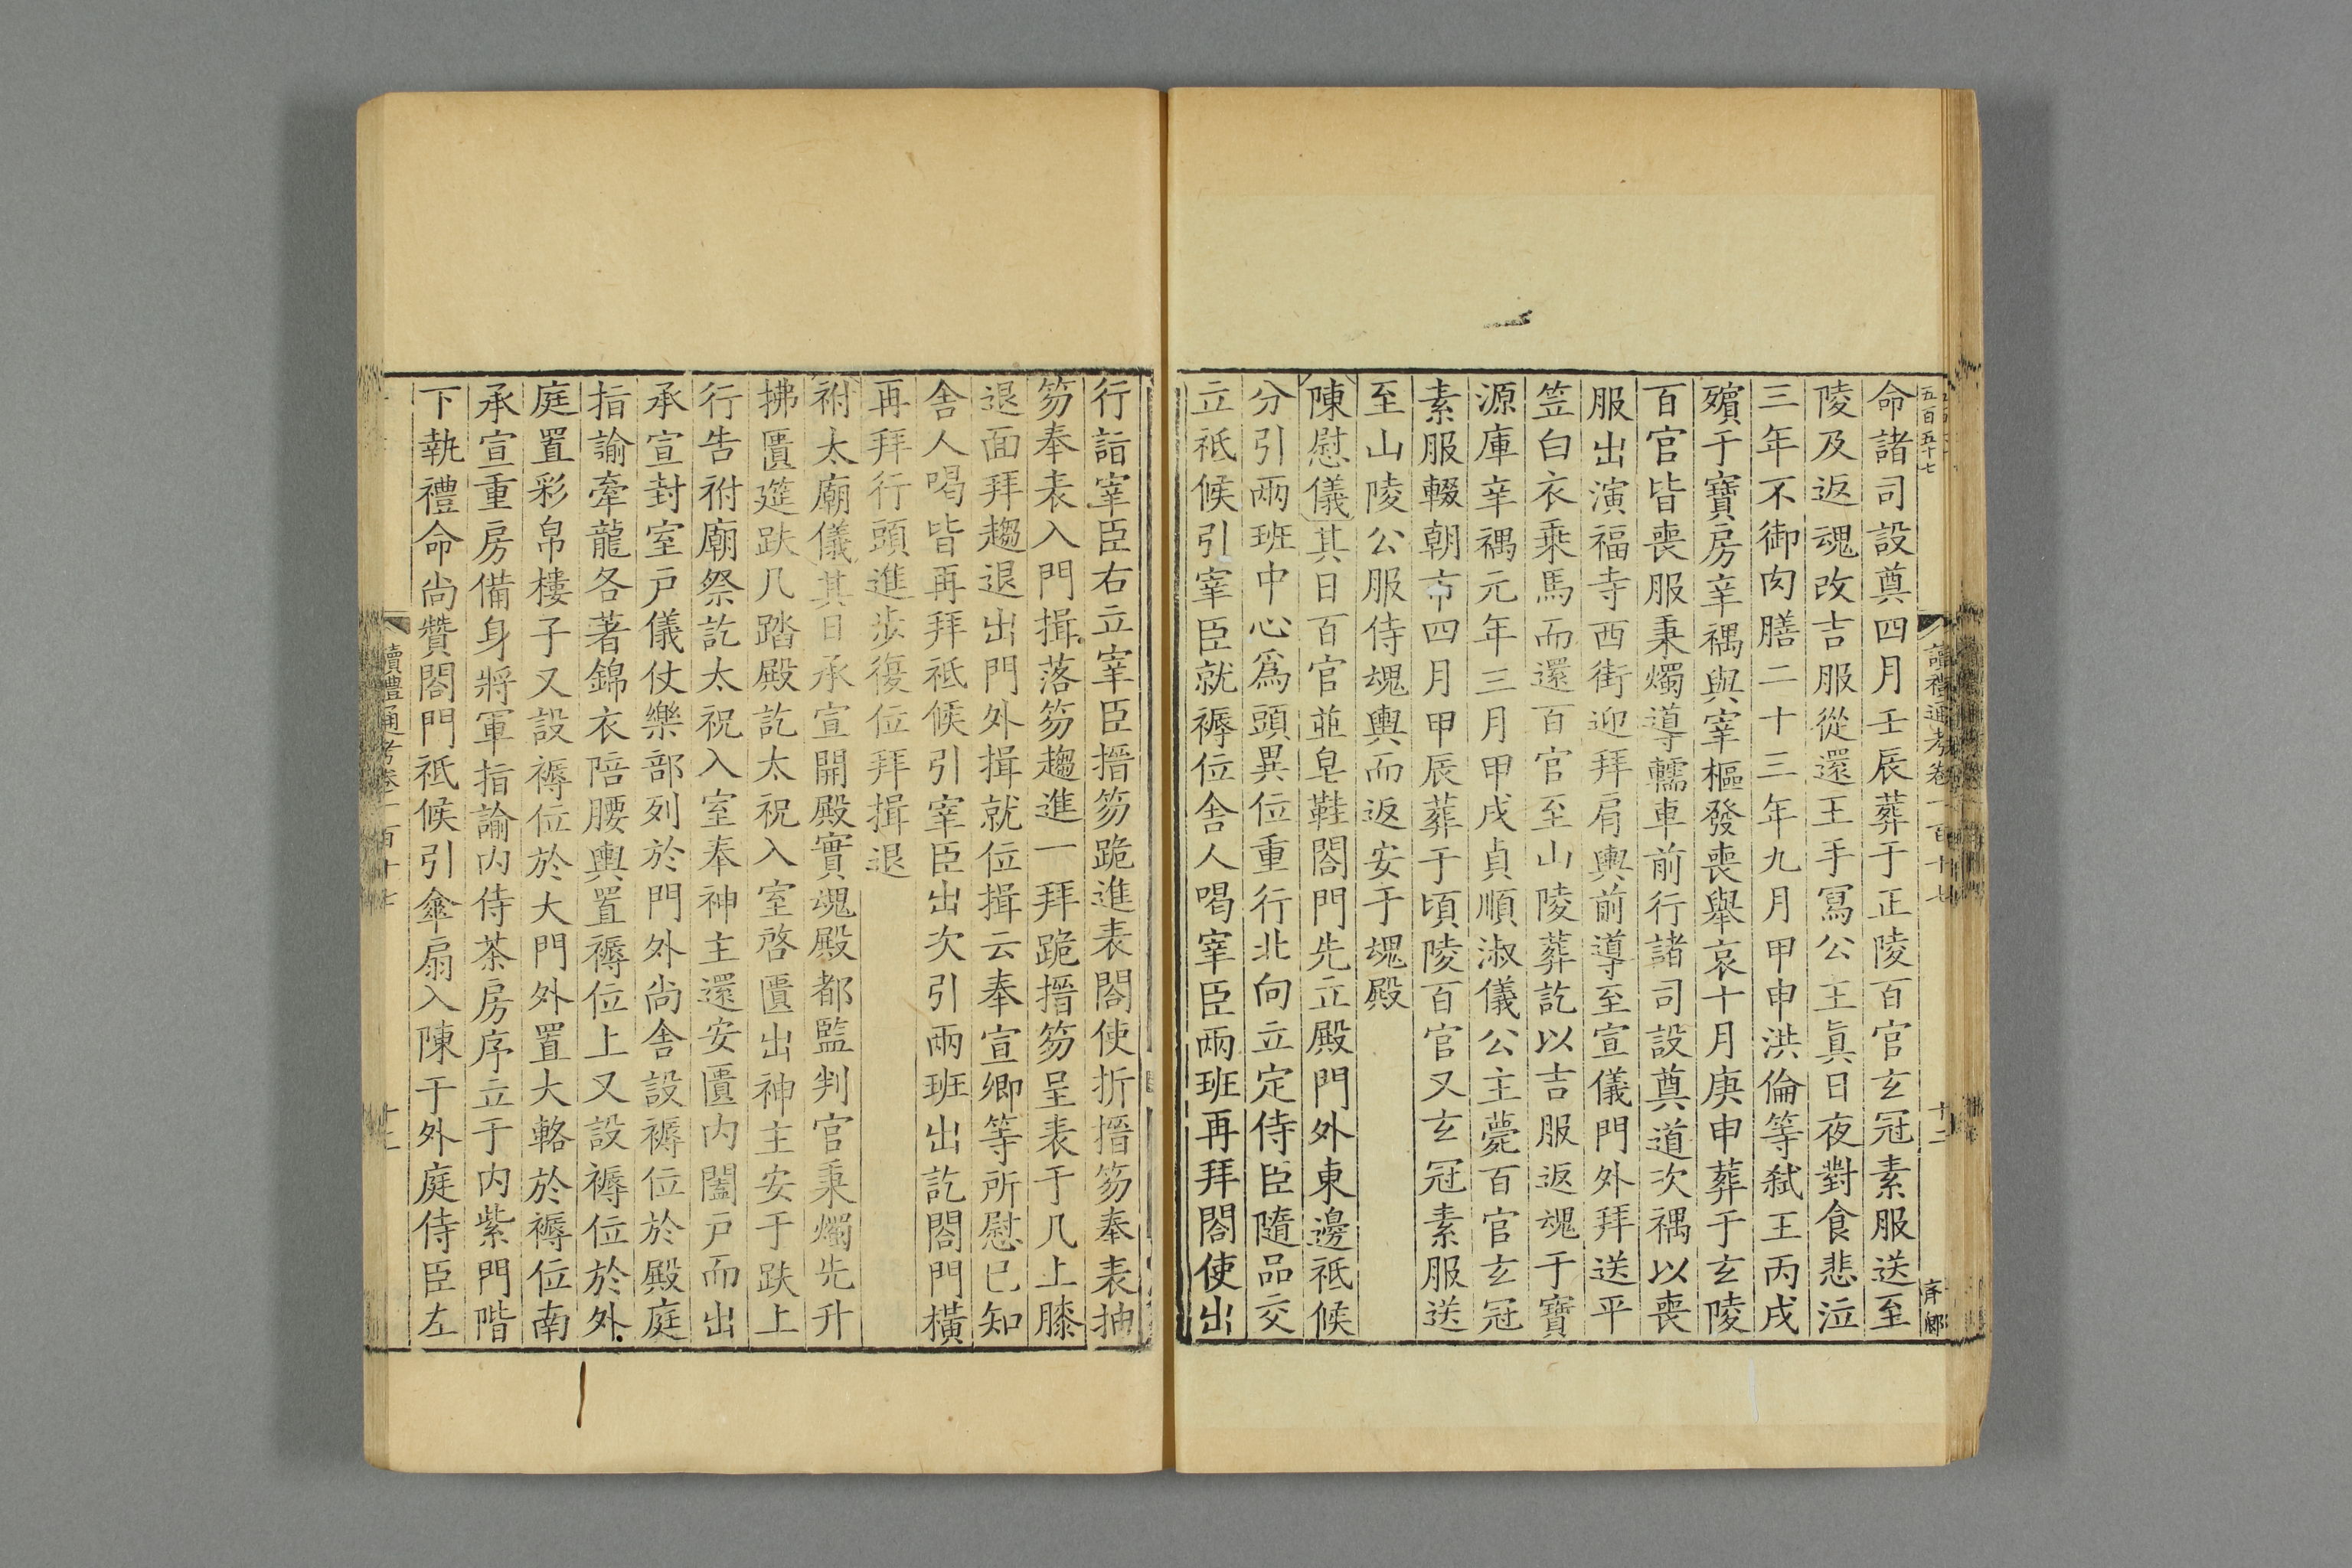 五百五十七
讀禮通考卷一百十七
十二
命諸司設奠四月壬辰葬于正陵百官玄冠素服送至
陵及返魂改吉服從還王手寫公主眞日夜對食悲泣
三年不御肉膳二十三年九月甲申洪倫等弑王丙戌
殯于寶房辛禑與宰樞發喪舉哀十月庚申葬于玄陵
百官皆喪服秉燭導轜車前行諸司設奠道次禑以喪
服出演福寺西街迎拜肩輿前導至宣儀門外拜送平
笠白衣乗馬而還百官至山陵葬訖以吉服返魂于寶
源庫辛禑元年三月甲戌貞順淑儀公主薨百官玄冠
素服輟朝市四月甲辰葬于頃陵百官又玄冠素服送
至山陵公服侍魂輿而返安于魂殿
陳慰儀其日百官並皂鞋閤門先立殿門外東邊祗候
分引兩班中心爲頭異位重行北向立定侍臣隨品交
立祗候引宰臣就褥位舎人喝宰臣兩班再拜閤使出
行詣宰臣右立宰臣搢笏跪進表閤使折搢笏奉表抽
笏奉表入門揖落笏趨進一拜跪搢笏呈表于几上膝
退面拜趨退出門外揖就位揖云奉宣卿等所慰已知
舎人喝皆再拜祗候引宰臣出次引兩班出訖閤門橫
再拜行頭進步復位拜揖退
祔太廟儀其日承宣開殿實魂殿都監判官秉燭先升
拂匱筵趺几踏殿訖太祝入室啓匱出神主安于趺上
行告祔廟祭訖太祝入室奉神主還安匱内闔戸而出
承宣封室戸儀仗樂部列於門外尚舎設褥位於殿庭
指諭牽龍各著錦衣陪腰輿置褥位上又設褥位於外
庭置彩帛樓子又設褥位於大門外置大輅於褥位南
承宣重房備身將軍指諭内侍茶房序立于内紫門階
下執禮命尚贊閤門祗候引傘扇入陳于外庭侍臣左
讀禮通考卷一百十七